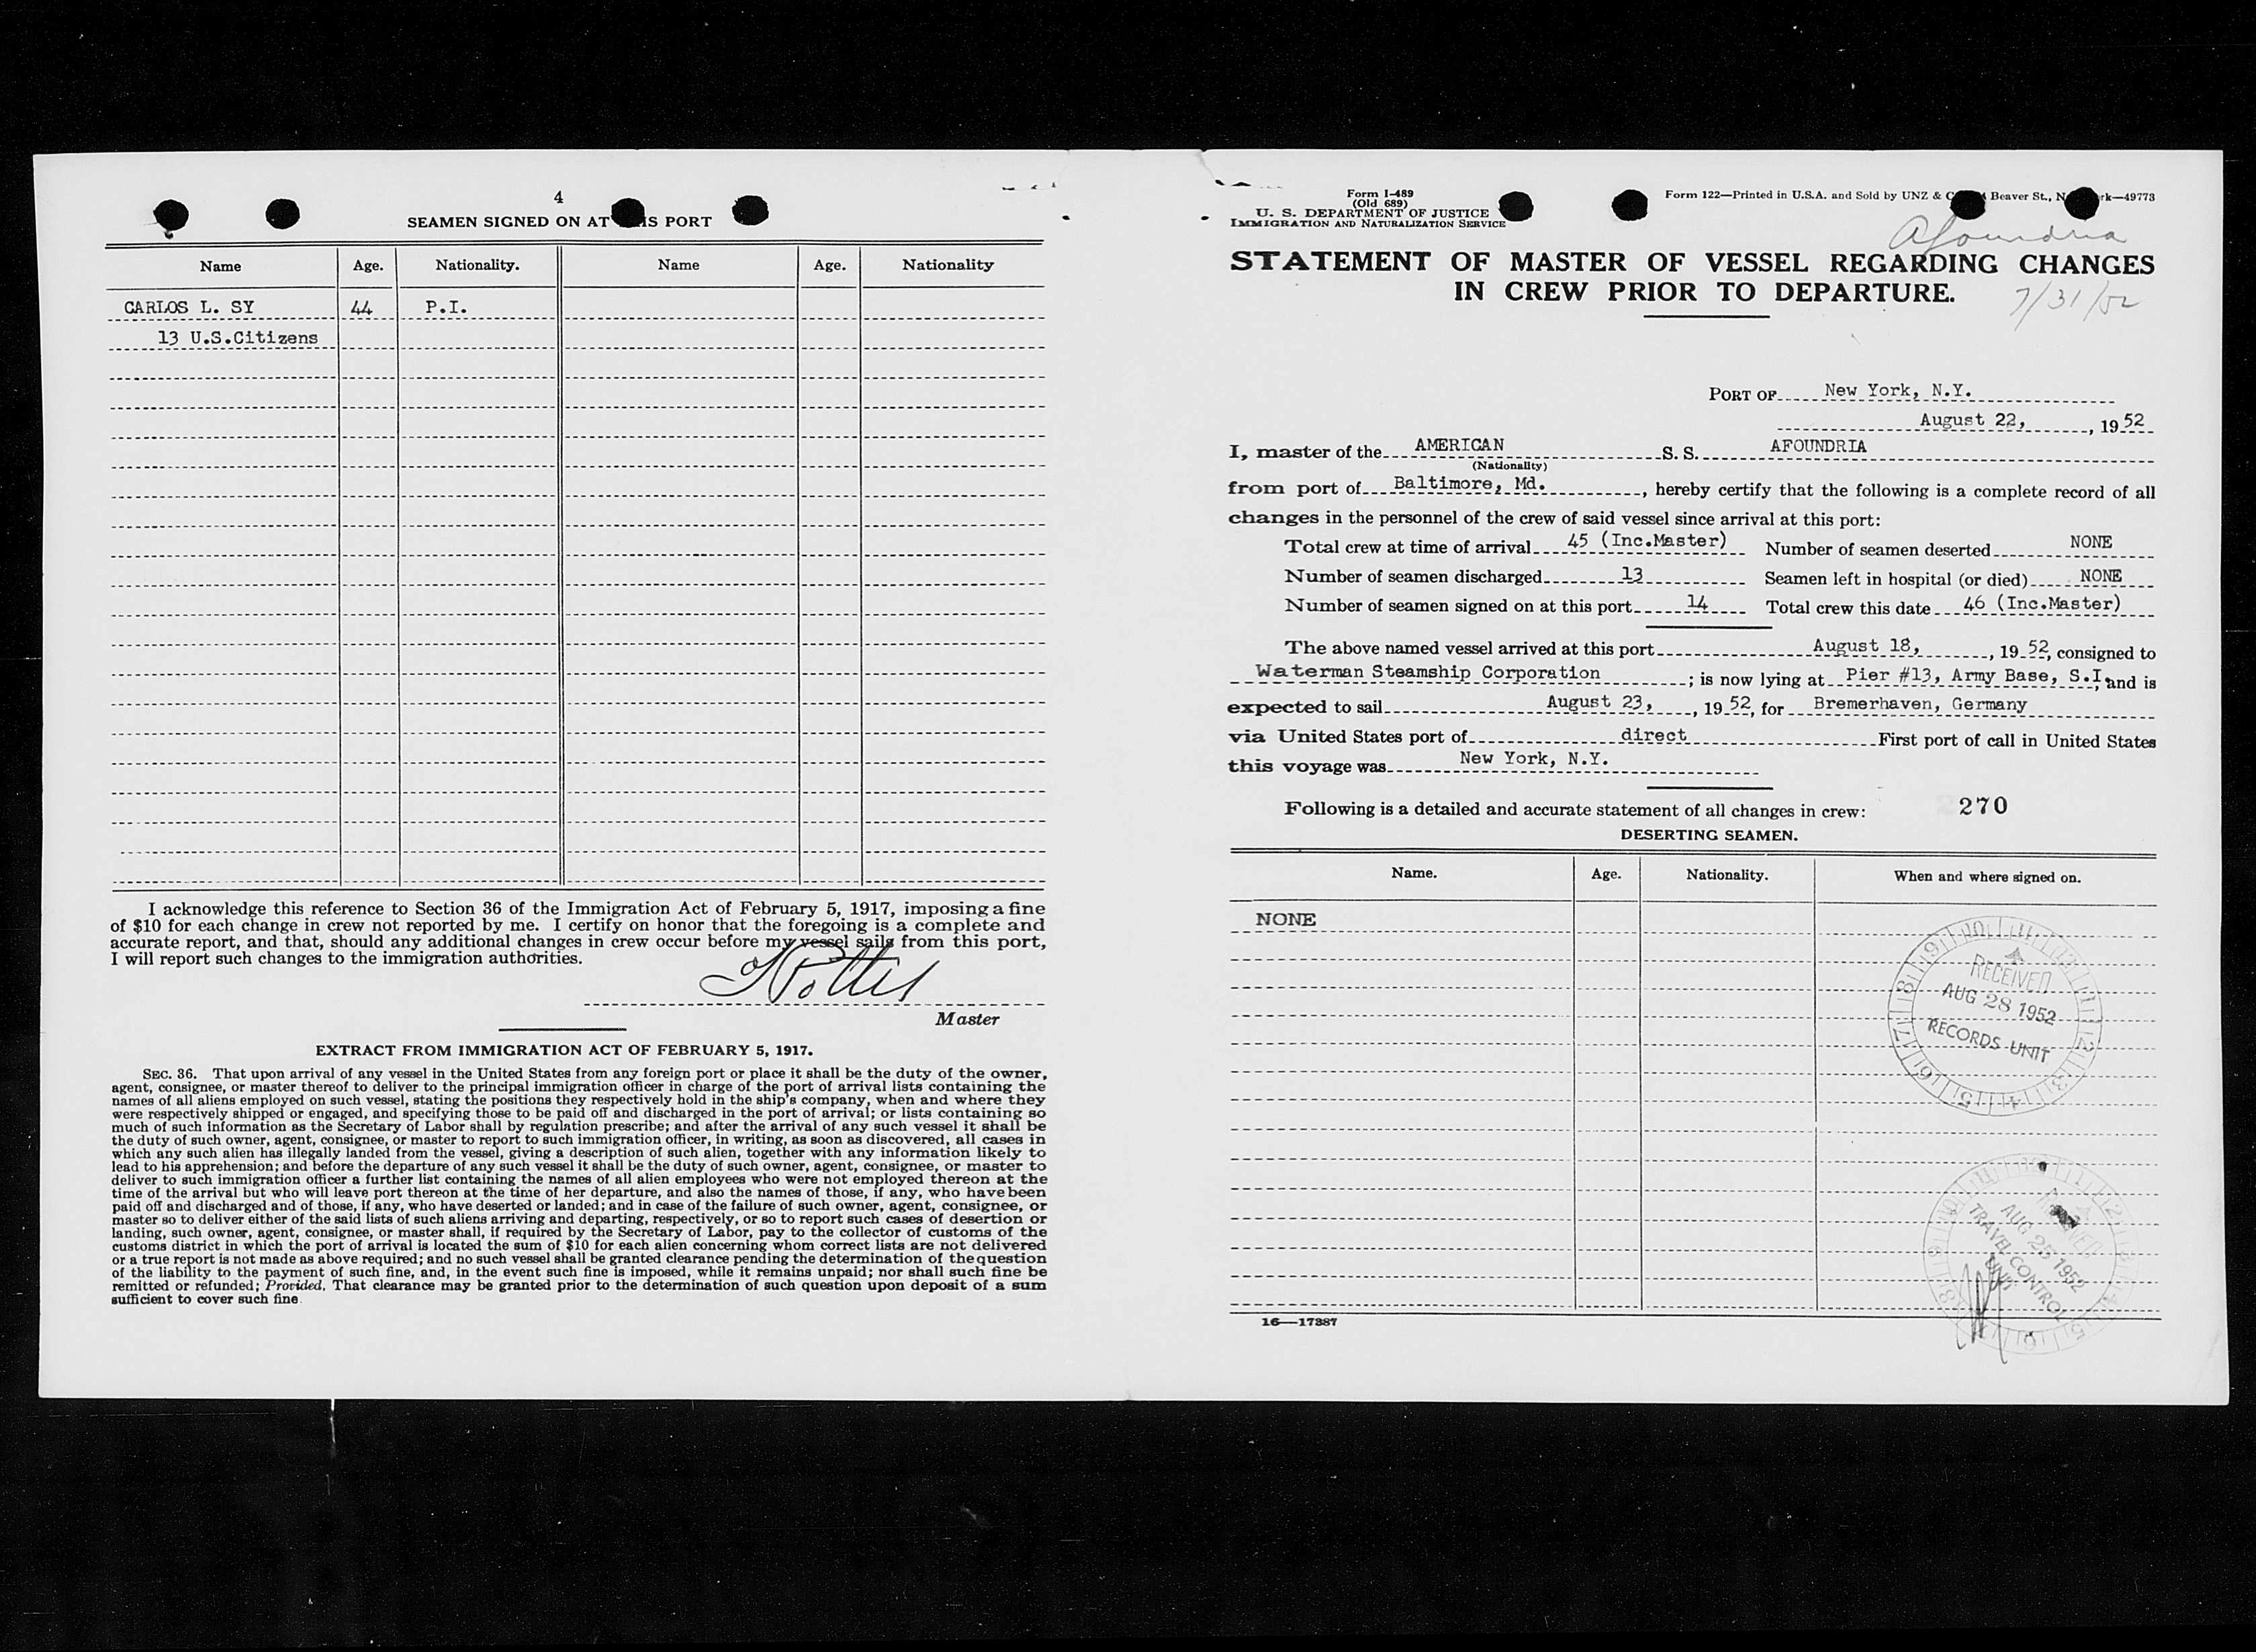 4
SEAMEN SIGNED ON AT IS PORT
Name Age. Nationality. Name Age. Nationality
CARLOS L. SY 44 P.I.
13 U.S.Citizens
I acknowledge this reference to Section 36 of the Immigration Act of February 5, 1917, imposing a fine
of $10 for each change in crew not reported by me. I certify on honor that the foregoing is a complete and
accurate report, and that, should any additional changes in crew occur before my vessel sails from this port,
I will report such changes to the immigration authorities.
Master
EXTRACT FROM IMMIGRATION ACT OF FEBRUARY 5, 1917.
SEC. 36. That upon arrival of any vessel in the United States from any foreign port or place it shall be the duty of the owner,
agent, consignee, or master thereof to deliver to the principal immigration officer in charge of the port of arrival lists containing the
names of all aliens employed on such vessel, stating the positions they respectively hold in the ship's company, when and where they
were respectively shipped or engaged, and specifying those to be paid off and discharged in the port of arrival; or lists containing so
much of such information as the Secretary of Labor shall by regulation prescribe; and after the arrival of any such vessel it shall be
the duty of such owner, agent, consignee, or master to report to such immigration officer, in writing, as soon as discovered, all cases in
which any such alien has illegally landed from the vessel, giving a description of such alien, together with any information likely to
lead to his apprehension; and before the departure of any such vessel it shall be the duty of such owner, agent, consignee, or master to
deliver to such immigration officer a further list containing the names of all alien employees who were not employed thereon at the
time of the arrival but who will leave port thereon at the time of her departure, and also the names of those, if any, who have been
paid off and discharged and of those, if any, who have deserted or landed; and in case of the failure of such owner, agent, consignee, or
master so to deliver either of the said lists of such aliens arriving and departing, respectively, or so to report such cases of desertion or
landing, such owner, agent, consignee, or master shall, if required by the Secretary of Labor, pay to the collector of customs of the
customs district in which the port of arrival is located the sum of $10 for each alien concerning whom correct lists are not delivered
or a true report is not made as above required; and no such vessel shall be granted clearance pending the determination of the question
of the liability to the payment of such fine, and, in the event such fine is imposed, while it remains unpaid; nor shall such fine be
remitted or refunded; Provided, That clearance may be granted prior to the determination of such question upon deposit of a sum
sufficient to cover such fine.
Form I-489
(Old 689)
U. S. DEPARTMENT OF JUSTICE
IMMIGRATION AND NATURALIZATION SERVICE
Form 122—Printed in U.S.A. and Sold by UNZ & C Beaver St., N rk—49773
Afoundria
STATEMENT OF MASTER OF VESSEL REGARDING CHANGES
IN CREW PRIOR TO DEPARTURE.
7/31/52
PORT OF New York, N.Y.
August 22, , 19 52
I, master of the AMERICAN S. S. AFOUNDRIA
(Nationality)
from port of Baltimore, Md. , hereby certify that the following is a complete record of all
changes in the personnel of the crew of said vessel since arrival at this port:
Total crew at time of arrival 45 (Inc.Master) Number of seamen deserted NONE
Number of seamen discharged 13 Seamen left in hospital (or died) NONE
Number of seamen signed on at this port 14 Total crew this date 46 (Inc.Master)
The above named vessel arrived at this port August 18, , 19 52, consigned to
Waterman Steamship Corporation ; is now lying at Pier #13, Army Base, S.I. , and is
expected to sail August 23, , 19 52, for Bremerhaven, Germany
via United States port of direct First port of call in United States
this voyage was New York, N.Y.
Following is a detailed and accurate statement of all changes in crew: 270
DESERTING SEAMEN.
Name. Age. Nationality. When and where signed on.
NONE
RECEIVED
AUG 28 1952
RECORDS UNIT
AUG 25 1952
TRAVEL CONTROL
UNIT
16—17387